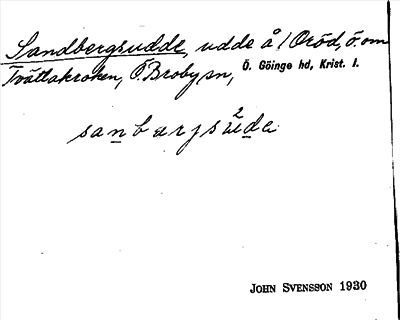 Sandbergsudde, udde å / Oröd, ö. om
Tvättakroken, Ö. Broby sn, Ö. Göinge hd, Krist. l.
sanbarjsude
JOHN SVENSSON 1930